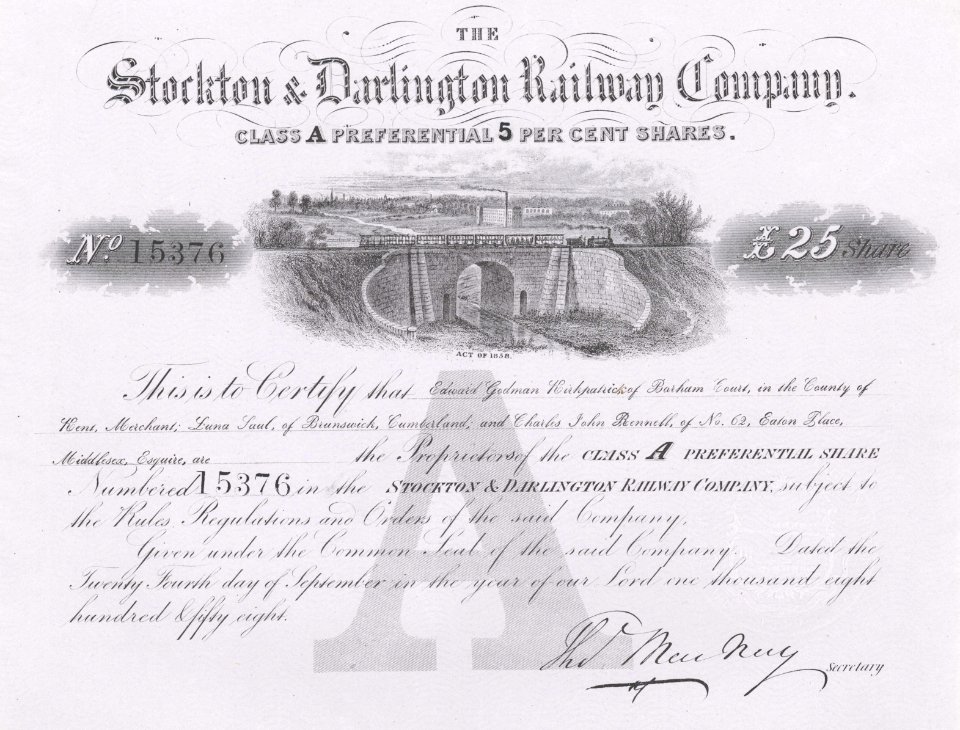 THE
Stockton & Darlington Railway Company.
CLASS A PREFERENTIAL 5 PER CENT SHARES.
No. 15376
£25 Share
ACT OF 1858.
This is to Certify that Edward Godman Kirkpatrick of Barham Court, in the County of
Kent, Merchant; Luna Saul, of Brunswick, Cumberland; and Charles John Bennell, of No. 62, Eaton Place,
Middlesex, Esquire, are the Proprietors of the CLASS A PREFERENTIAL SHARE
Numbered 15376 in the STOCKTON & DARLINGTON RAILWAY COMPANY, subject to
the Rules Regulations and Orders of the said Company,
Given under the Common Seal of the said Company. Dated the
Twenty Fourth day of September in the year of our Lord one thousand eight
hundred & fifty eight.
Thos MacNay Secretary
A